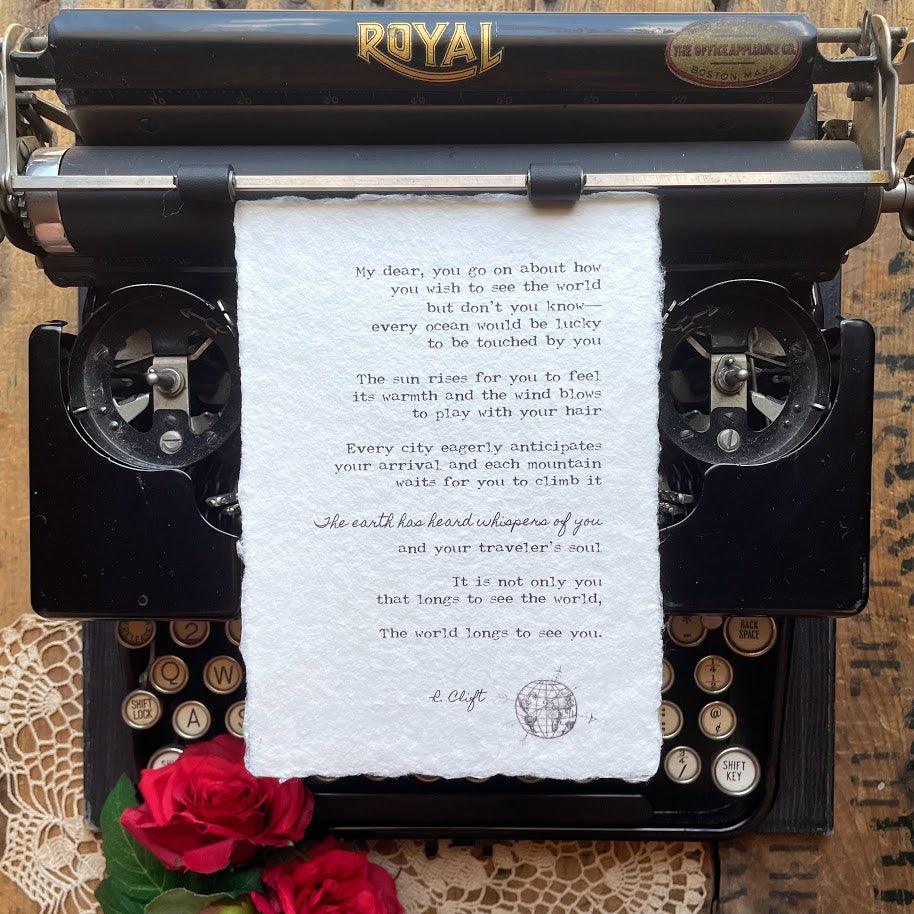 ROYAL
THE OFFICE APPLIANCE CO.
BOSTON, MASS.
My dear, you go on about how
you wish to see the world
but don't you know—
every ocean would be lucky
to be touched by you
The sun rises for you to feel
its warmth and the wind blows
to play with your hair
Every city eagerly anticipates
your arrival and each mountain
waits for you to climb it
The earth has heard whispers of you
and your traveler's soul
It is not only you
that longs to see the world,
The world longs to see you.
R. Clift
2
BACK
SPACE
Q W
SHIFT
LOCK
A
@
¢
SHIFT
KEY